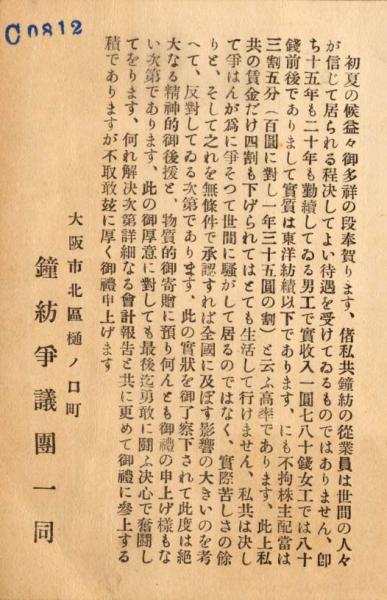 C0812
初夏の候益々御多祥の段奉賀ります、偖私共鐘紡の從業員は世間の人々
が信じて居られる程決してよい待遇を受けてゐるものではありません、卽
ち十五年も二十年も勤續してゐる男工で實收入一圓七八十錢女工では八十
錢前後でありまして實質は東洋紡績以下であります、にも不拘株主配當は
三割五分（百圓に對し一年三十五圓の割）と云ふ高率であります、此上私
共の賃金だけ四割も下げられてはとても生活して行けません、私共は決し
て爭はんが爲に爭そつて世間に騷がして居るのではなく、實際苦しさの餘
りと、そして之れを無條件で承認すれば全國に及ぼす影響の大きいのを考
へて、反對してゐる次第であります、此の實狀を御了察下されて此度は絕
大なる精神的御後援と、物質的御寄贈に預り何んとも御禮の申上げ樣もな
い次第であります、此の御厚意に對しても最後迄勇敢に鬪ふ決心で奮鬪し
てをります、何れ解決次第詳細なる會計報吿と共に更めて御禮に參上する
積でありますが不取敢玆に厚く御禮申上げます
大阪市北區樋ノ口町
鐘紡爭議團一同